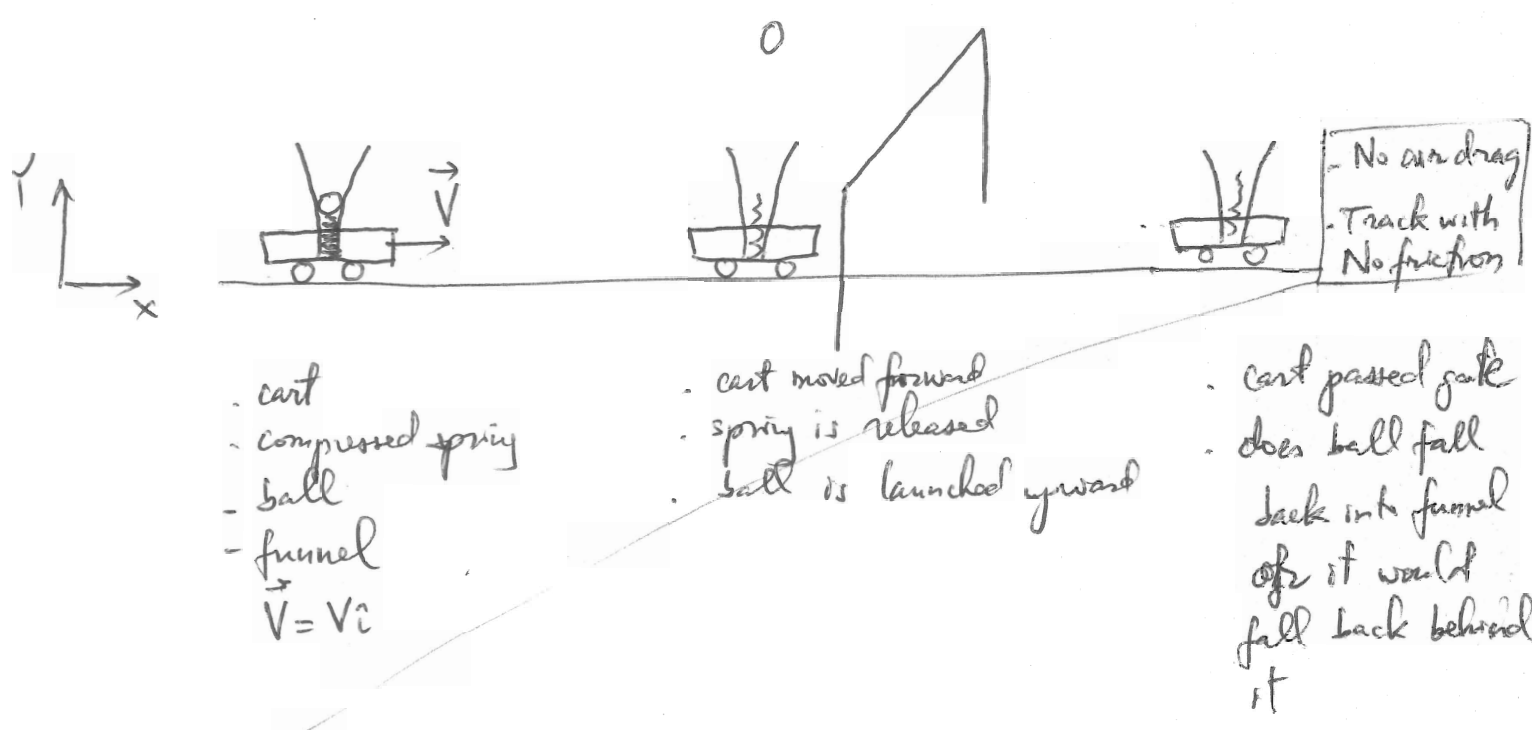 Y
X
V
- No air drag
- Track with
No friction
. cart
. compressed spring
- ball
- funnel
V = Vî
. cart moved forward
. spring is released
. ball is launched upward
. cart passed gate
. does ball fall
back into funnel
or it would
fall back behind
it